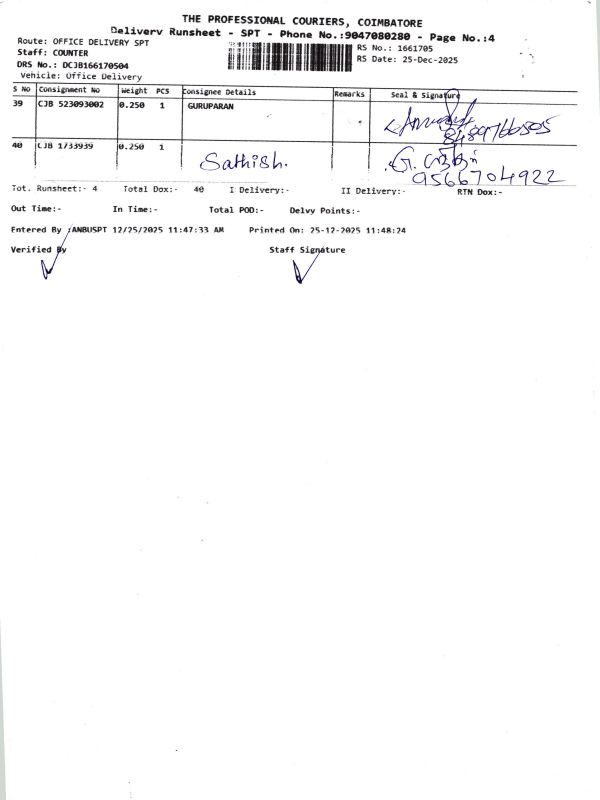 THE PROFESSIONAL COURIERS, COIMBATORE
Delivery Runsheet - SPT - Phone No.:9047080280 - Page No.:4
Route: OFFICE DELIVERY SPT
Staff: COUNTER
DRS No.: DCJB166170504
Vehicle: Office Delivery
RS No.: 1661705
RS Date: 25-Dec-2025
S No Consignment No Weight PCS Consignee Details Remarks Seal & Signature
39 CJB 523093002 0.250 1 GURUPARAN
40 CJB 1733939 0.250 1 Sathish.
9566704922
Tot. Runsheet:- 4 Total Dox:- 40 I Delivery:- II Delivery:- RTN Dox:-
Out Time:- In Time:- Total POD:- Delvy Points:-
Entered By :ANBUSPT 12/25/2025 11:47:33 AM Printed On: 25-12-2025 11:48:24
Verified By Staff Signature